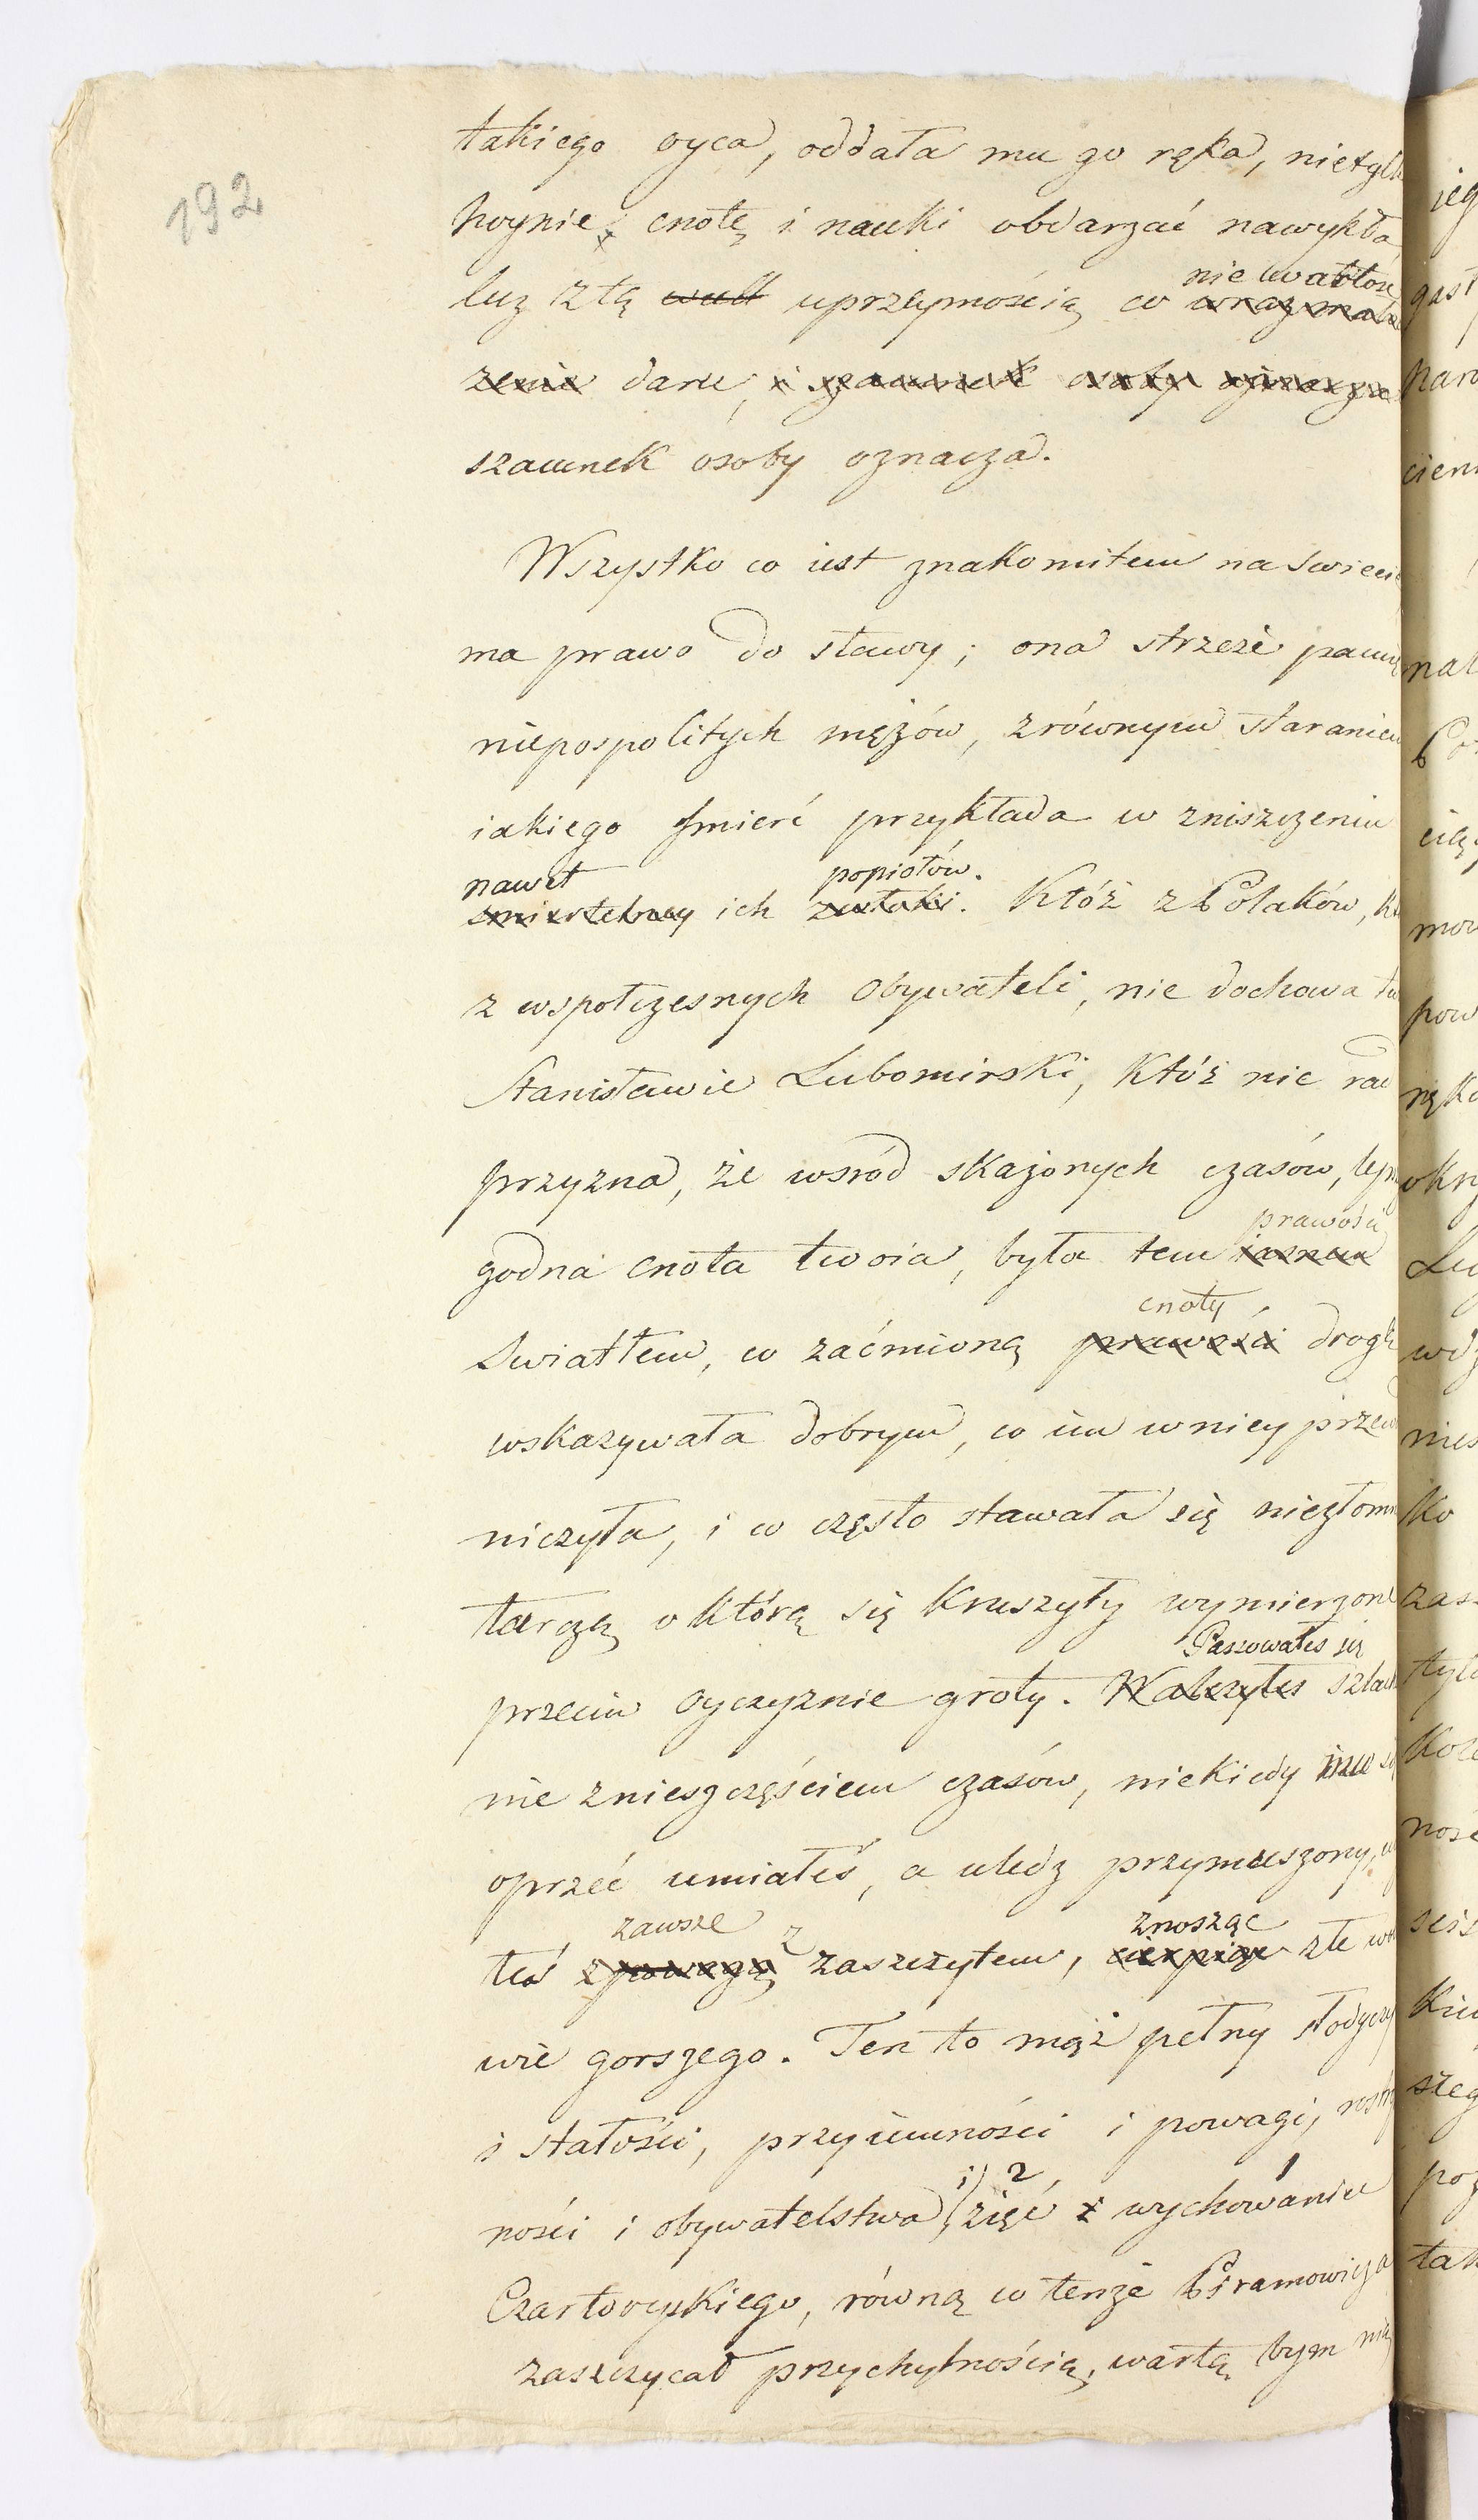 192
takiego oyca, oddała mu go ręka, nietylk
hoynie cnotę i nauki obdarzać nawykła
lecz z tą uprzeymością co
nie wartość
daru,
szacunek osoby oznacza.
Wszystko co iest znakomitem na swiecie
ma prawo do sławy; ona strzeże pamię
niepospolitych mężów, z równym staraniem
iakiego śmierć przykłada w zniszczeniu
nawet popiołów.
śmiertelney ich zwłoki. Któż z Polaków, kt
z wspołczesnych obywateli, nie dochowa tw
Stanisławie Lubomirski, któż nie rad
przyzna, że wsród skażonych czasów, lep
prawości
godna cnota twoia, była tem iasnem
cnoty
swiatłem, co zaćmioną prawości drogę
wskazywała dobrym, co im w niey przewo
niczyła, i co często stawała się niezłomn
tarczą o którą się kruszyły wymierzone
Passowałeś się
przeciw oyczyznie groty. Walczyłeś szlach
nie z nieszczęściem czasów, niekiedy mu się
oprzeć umiałeś, a uledz przymuszony, u
zawsze z znosząc
łeś z powagą zaszczytem, cierpiąc złe w
wie gorszego. Ten to mąż pełny słodyczy
i stałości, przyiemności i powagi, rostr
i) 2 1
ności i obywatelstwa, zięć i wychowaniec
Czartoryskiego, równą co tenże Piramowicza
zaszczycał przychylnością, wartą bym nią